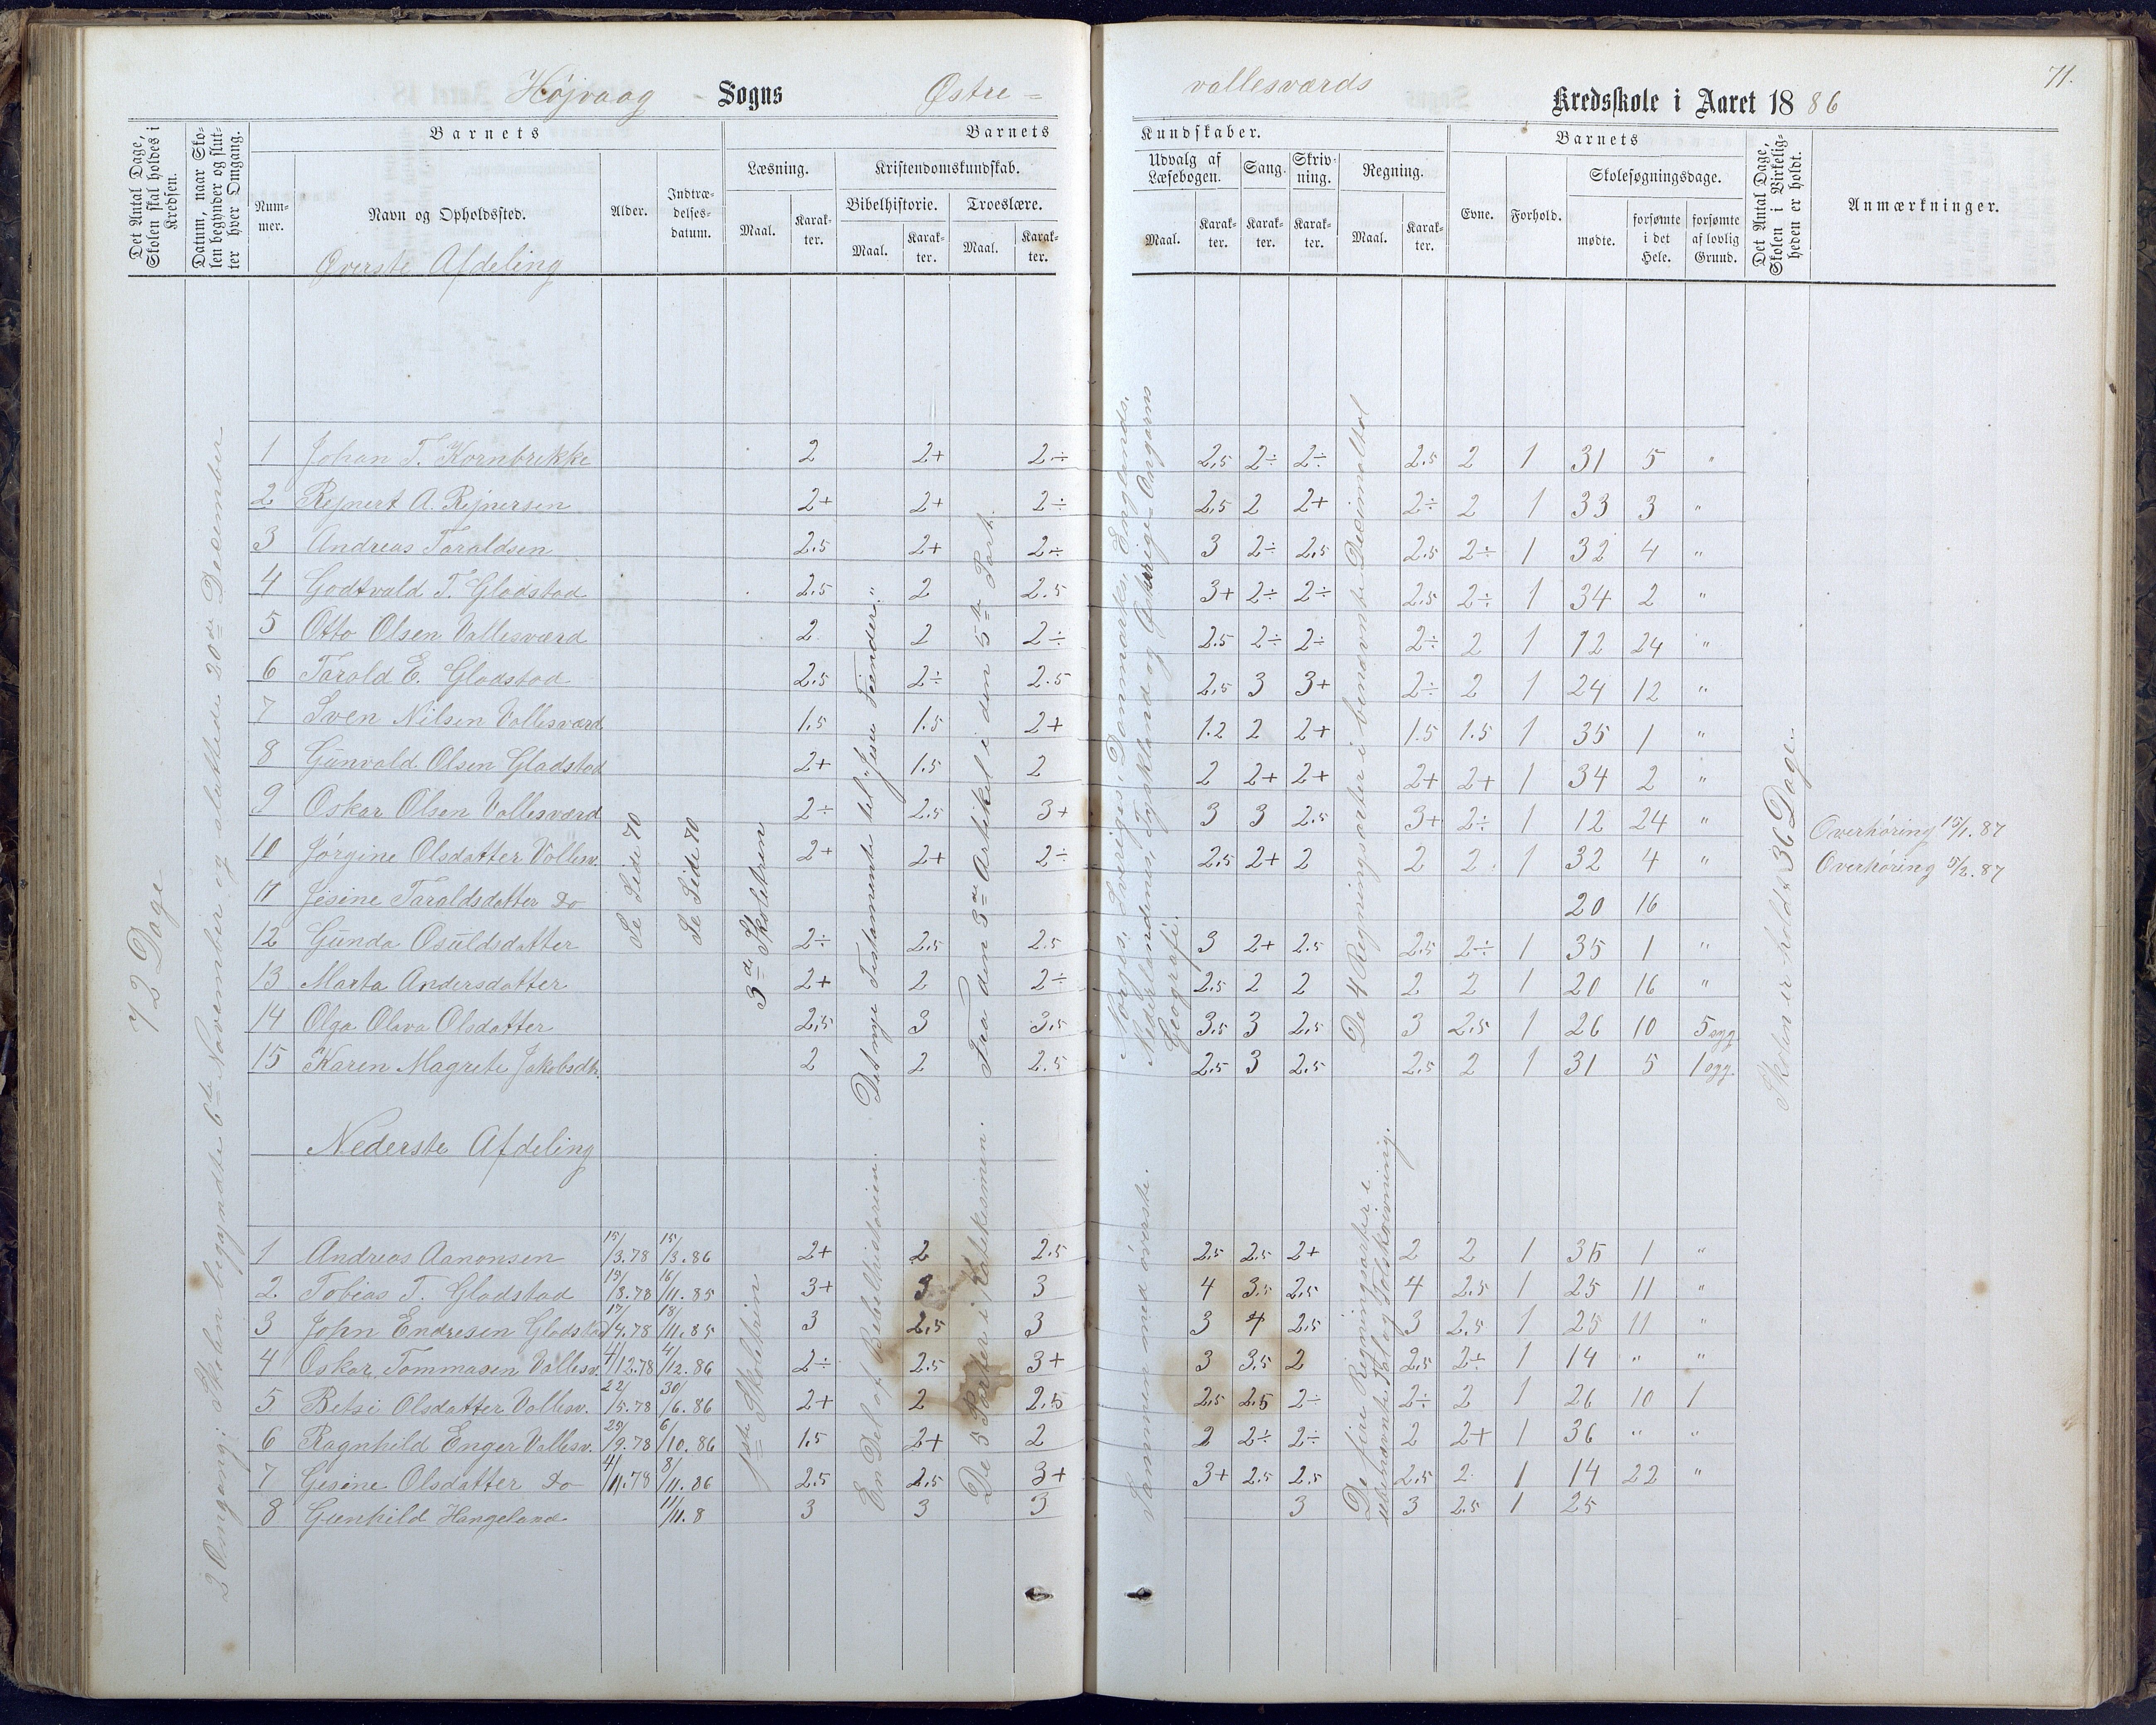 Højvaag Sogns Østre =
vallesværds Kredsskole i Aaret 1886
71.
Det Antal Dage, Skolen skal holdes i Kredsen.
Datum, naar Skolen begynder og slutter hver Omgang.
Barnets
Nummer.
Navn og Opholdssted.
Alder.
Indtrædelsesdatum.
Barnets
Læsning.
Kristendomskundskab.
Maal.
Karakter.
Bibelhistorie.
Troeslære.
Maal.
Karakter.
Maal.
Karakter.
Kundskaber.
Udvalg af Læsebogen.
Sang.
Skrivning.
Regning.
Maal.
Karakter.
Karakter.
Karakter.
Maal.
Karakter.
Barnets
Evne.
Forhold.
Skolesøgningsdage.
mødte.
forsømte i det Hele.
forsømte af lovlig Grund.
Det Antal Dage, Skolen i Virkeligheden er holdt.
Anmærkninger.
Øverste Afdeling
72 Dage
2 Omgang: Skolen begyndte 6te November og sluttede 20de December
Se Side 70
Se Side 70
3de Skoletrin
Det nye Testamente til "Jesu Fiender."
Fra den 3die Artikel i den 5te Part.
Norges, Sveriges, Danmarks, Englands, Nederlandenes, Tyskland og Østerrige-Ungarns Geografi.
De 4 Regningsarter i benævnte Decimaltal
Skolen er holdt 36 Dage.
1 Johan T. Kornbrekke 2 2+ 2÷ 2,5 2÷ 2÷ 2.5 2 1 31 5 "
2 Rejnert A. Rejnersen 2+ 2+ 2÷ 2,5 2 2+ 2÷ 2 1 33 3 "
3 Andreas Taraldsen 2.5 2+ 2÷ 3 2÷ 2,5 2.5 2÷ 1 32 4 "
4 Godtvald T. Gladstad 2.5 2 2.5 3+ 2÷ 2÷ 2.5 2÷ 1 34 2 "
5 Otto Olsen Vallesværd 2 2 2÷ 2.5 2÷ 2÷ 2÷ 2 1 12 24 "
6 Tarald E. Gladstad 2.5 2÷ 2.5 2,5 3 3+ 2÷ 2 1 24 12 "
7 Sven Nilsen Vallesværd 1.5 1.5 2+ 1.2 2 2+ 1.5 1.5 1 35 1 "
8 Gunvald Olsen Gladstad 2+ 1.5 2 2 2+ 2+ 2+ 2+ 1 34 2 "
9 Oskar Olsen Vallesværd 2÷ 2.5 3+ 3 3 2.5 3+ 2÷ 1 12 24 " Overhøring 15/1. 87
10 Jørgine Olsdatter Vallesv. 2+ 2+ 2÷ 2.5 2+ 2 2 2 1 32 4 " Overhøring 5/2. 87
11 Jesine Taraldsdatter Do 20 16
12 Gunda Osuldsdatter 2÷ 2.5 2.5 3 2+ 2.5 2.5 2÷ 1 35 1 "
13 Marta Andersdatter 2+ 2 2÷ 2.5 2 2 2 2 1 20 16 "
14 Olga Olava Olsdatter 2.5 3 3.5 3.5 3 2.5 3 2.5 1 26 10 5 sgg
15 Karen Magrete Jakobsdt. 2 2 2.5 2.5 3 2.5 2.5 2 1 31 5 1 sgg.
Nederste Afdeling
1ste Skoletrin
En Del af Bibelhistorien.
De 5 Parter i Katekismen.
Sammen med øverste.
De fire Regningsarter i ubenævnte Tal og Talskrivning.
1 Andreas Aanonsen 15/3.78 15/3.86 2+ 2 2.5 2.5 2.5 2+ 2 2 1 35 1 "
2. Tobias T. Gladstad 19/8.78 16/11.85 3+ 3 3 4 3.5 2.5 4 2.5 1 25 11 "
3 John Endresen Gladstad 17/4.78 18/11.85 3 2.5 3 3 4 2.5 3 2.5 1 25 11 "
4 Oskar Tommasen Vallesv. 4/12.78 4/12.86 2÷ 2.5 3+ 3 3.5 2 2.5 2÷ 1 14 " "
5 Betsi Olsdatter Vallesv. 22/5.78 30/6.86 2+ 2 2.5 2.5 2.5 2÷ 2÷ 2 1 26 10 1
6 Ragnhild Enger Vallesv. 25/9.78 6/10.86 1.5 2+ 2 2 2÷ 2÷ 2 2+ 1 36 " "
7 Gesine Olsdatter Do 4/11.78 8/11.86 2.5 2.5 3+ 3+ 2.5 2.5 2.5 2 1 14 22 "
8 Gunhild Hangeland 11/11.8 3 3 3 3 3 2.5 1 25